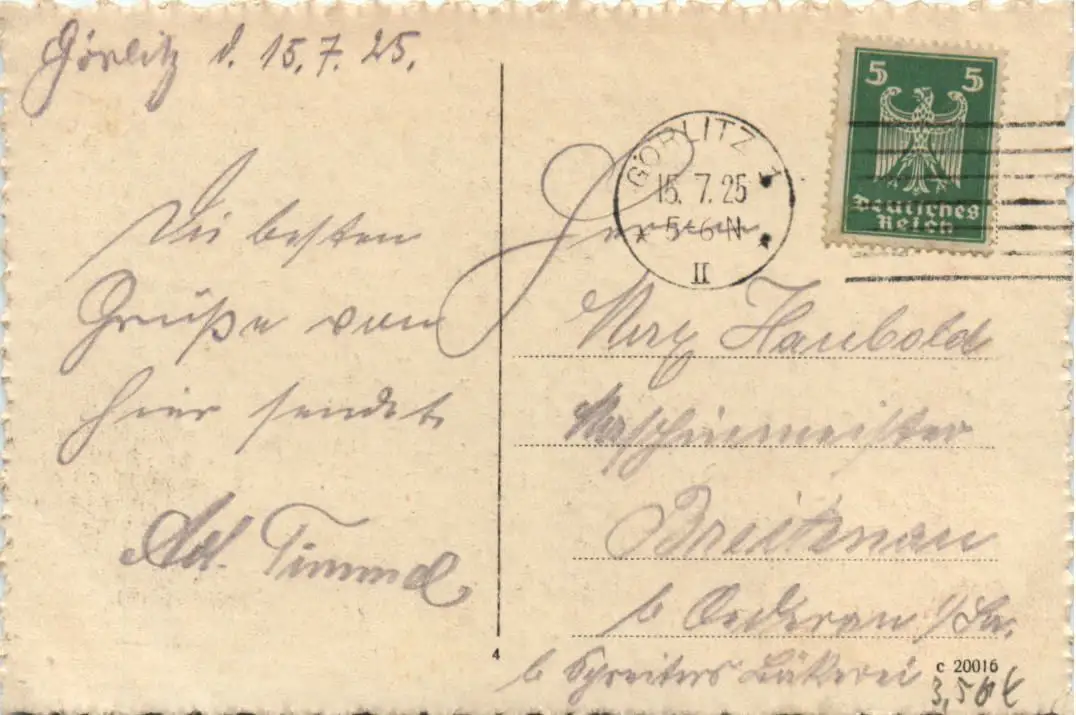 Görlitz d. 15.7.25.
Die besten
Grüße von
hier sendet
Ad. Timmel
GÖRLITZ 1
15. 7. 25
5-6 N
II
5 5
Deutsches
Reich
Herrn
Max Haubold
Maschinenmeister
Breitenau
b Oederan i/Sa.
b Schreiters Bäkerei
4
c 20016
3,50 €